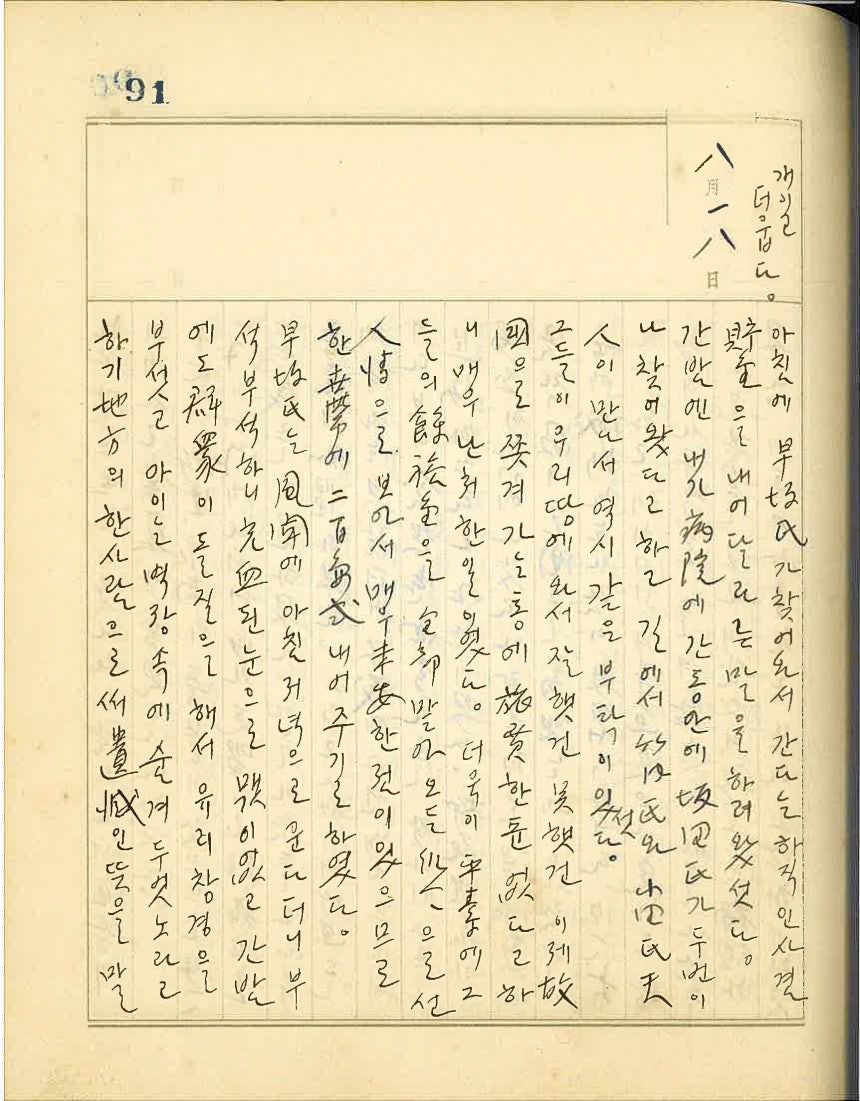 91
개이고
더웁다。
八月一八日
아침에 早坂氏가 찾어와서 간다는 하직 인사 겸
貯金을 내어 달라는 말을 하려 왔섯다。
간밤엔 내가 病院에 간 동안에 坂田氏가 두번이
나 찾어왔다고 하고 길에서 竹内氏와 富田氏夫
人이 만나서 역시 같은 부탁이 있섯다。
그들이 우리 땅에 와서 잘햇건 못햇건 이제 故
國으로 쫓겨 가는 통에 旅費 한 푼 없다고 하
니 매우 난처한 일이였다。 더욱이 平素에 그
들의 餘裕金을 全部 말아 오든 으로선
人情으로 보아서 매우 未安한 점이 있으므로
한 에 二百 式 내어 주기로 하였다。
早坂氏는 風聞에 아침 저녁으로 운다더니 부
석부석하니 充血된 눈으로 간밤
에도 群衆이 돌질을 해서 유리창경을
부섯고 아이는 벽장 속에 숨겨 두엇노라고
하기 地方의 한사람으로써 遺憾인 뜻을 말